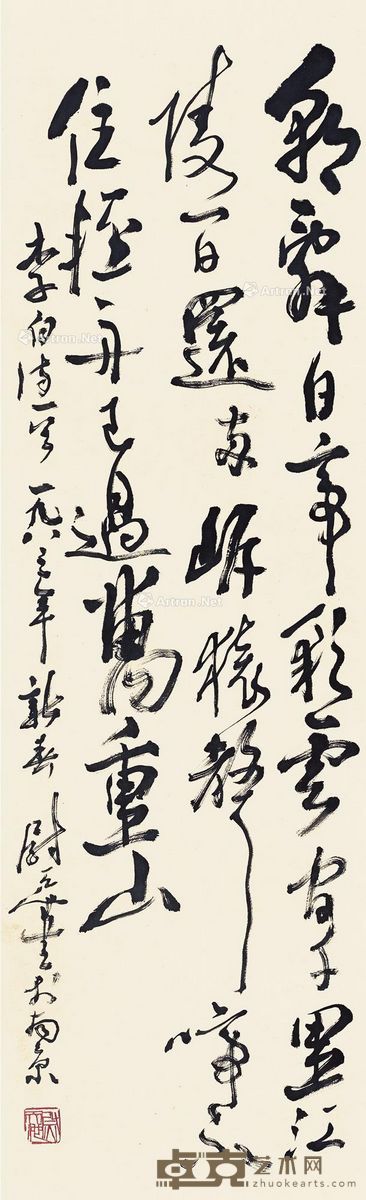 朝辭白帝彩雲間千里江
陵一日還兩岸猿聲啼不
住輕舟已過萬重山
李白詩一首 一九八三年新春 尉天池書於南京
Artron.Net
Artron.Net
Artron.Net
Artron.Net
卓克艺术网
zhuokearts.com